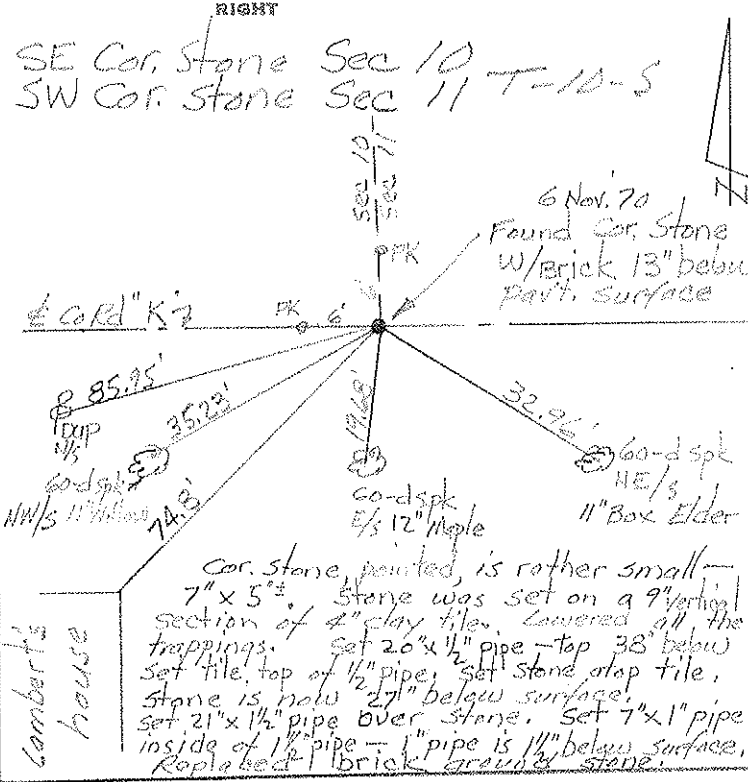 RIGHT
SE Cor. Stone Sec 10
SW Cor. Stone Sec 11 T-10-S
Sec 10
Sec 11
N
6 Nov. '70
Found Cor. Stone
W/Brick 13" below
pav't. surface
PK
℄ Co Rd "K"
PK 6'
85.95'
35.23'
74.8'
19.68'
32.96'
N/s
60-d spk
NW/s 11" Willow
60-d spk
E/s 12" Maple
60-d spk
NE/s
11" Box Elder
Lambert's
house
Cor. stone, pointed, is rather small —
7" x 5"±. Stone was set on a 9" vertical
section of 4" clay tile. Lowered all the
trappings. Set 20" x 1/2" pipe — top 38" below
Set tile top of 1/2" pipe, set stone atop tile.
Stone is now 27" below surface.
Set 21" x 1 1/2" pipe over stone. Set 7" x 1" pipe
inside of 1 1/2" pipe — 1" pipe is 1 1/2" below surface.
Replaced 1 brick around stone.